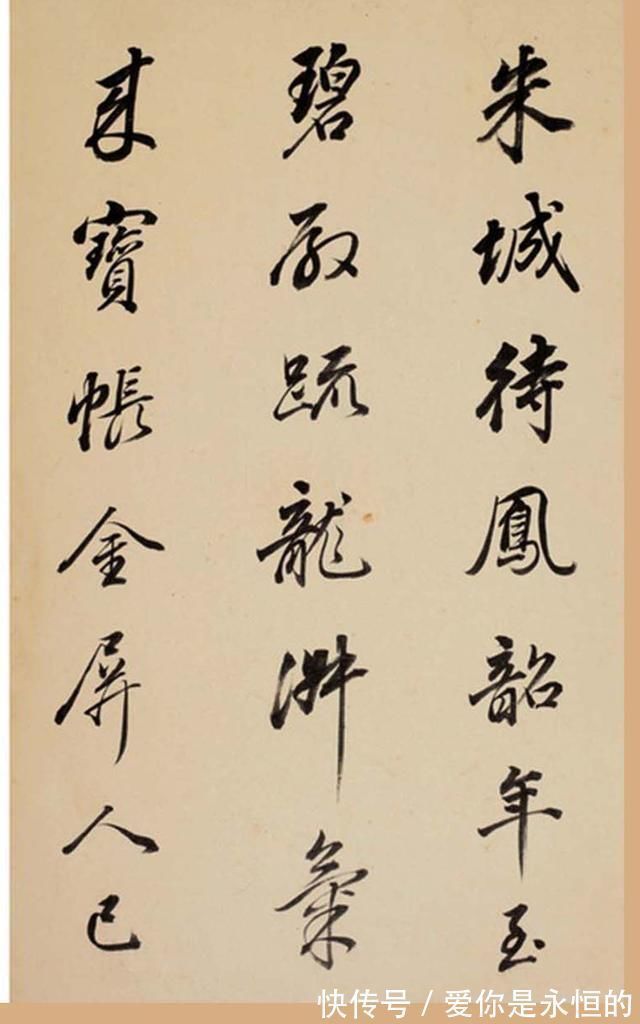 朱城待鳳韶年至
碧殿疏龍淑氣
來寶帳金屏人已
快传号 / 爱你是永恒的